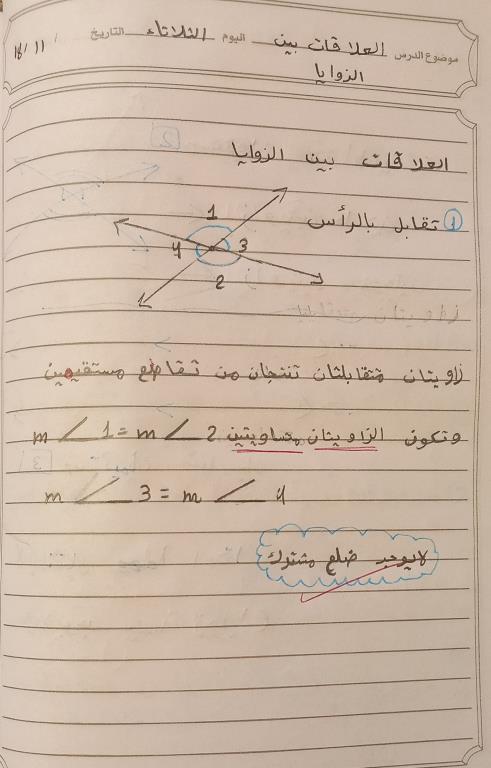 موضوع الدرس العلاقات بين اليوم الثلاثاء التاريخ 11/ 18
الزوايا
العلاقات بين الزوايا
1 تقابل بالرأس
1
4 3
2
زاويتان متقابلتان تنتجان من تقاطع مستقيمين
وتكون الزاويتان متساويتين m∠1 = m∠2
m∠3 = m∠4
لا يوجد ضلع مشترك